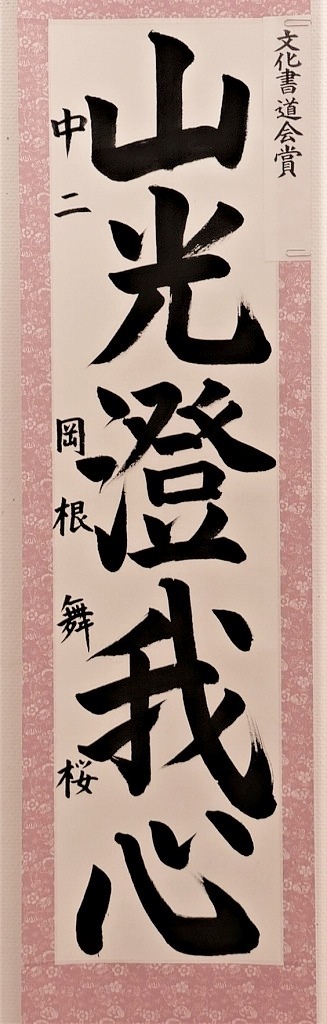 文化書道会賞
山光澄我心
中二 岡根舞桜